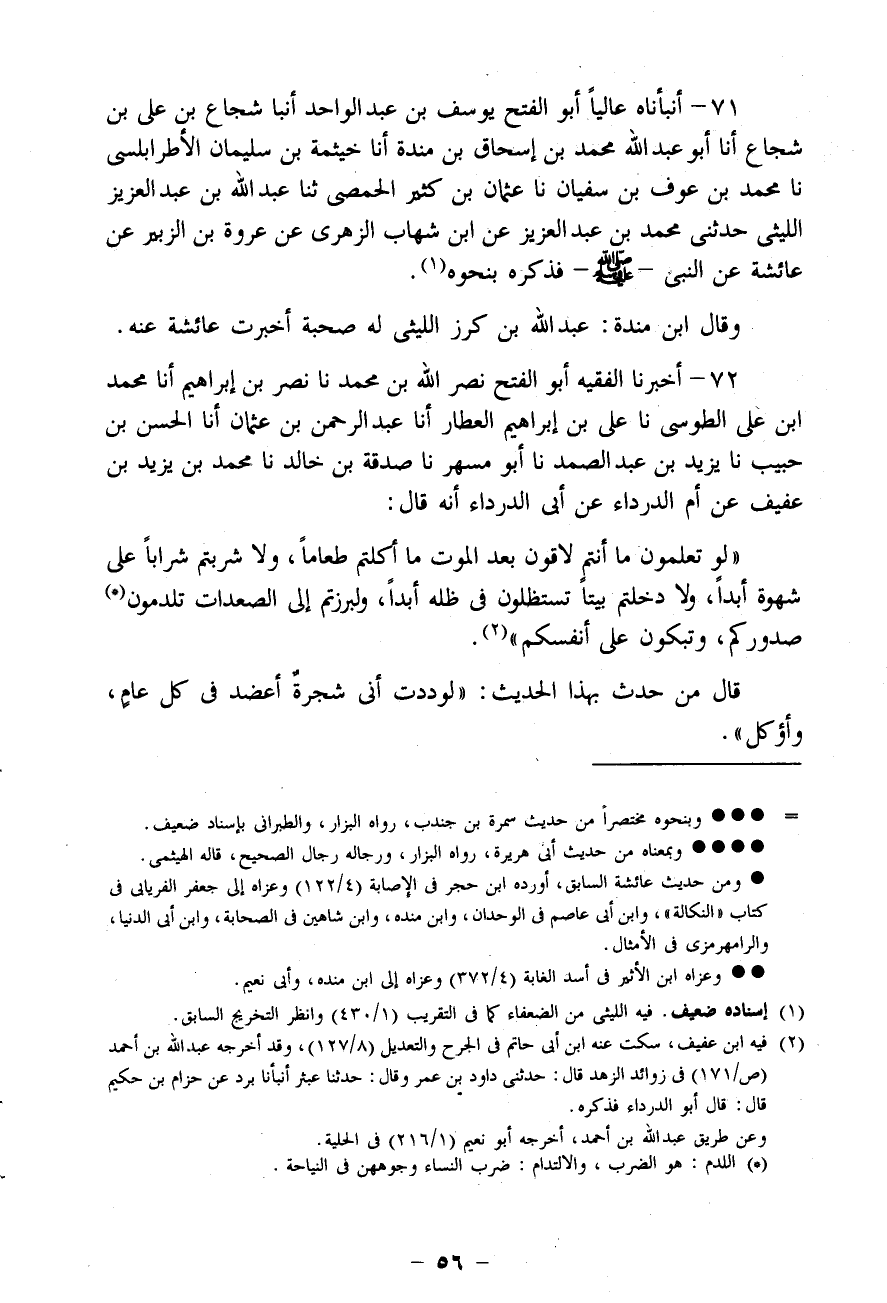 ٧١- أنبأناه عالياً أبو الفتح يوسف بن عبدالواحد أنبا شجاع بن على بن
شجاع أنا أبو عبدالله محمد بن إسحاق بن مندة أنا خيثمة بن سليمان الأطرابلسى
نا محمد بن عوف بن سفيان نا عثمان بن كثير الحمصى ثنا عبدالله بن عبدالعزيز
الليثى حدثنى محمد بن عبدالعزيز عن ابن شهاب الزهرى عن عروة بن الزبير عن
عائشة عن النبى - ﷺ - فذكره بنحوه(١).
وقال ابن مندة: عبدالله بن كرز الليثى له صحبة أخبرت عائشة عنه.
٧٢- أخبرنا الفقيه أبو الفتح نصر الله بن محمد نا نصر بن إبراهيم أنا محمد
ابن على الطوسى نا على بن إبراهيم العطار أنا عبدالرحمن بن عثمان أنا الحسن بن
حبيب نا يزيد بن عبدالصمد نا أبو مسهر نا صدقة بن خالد نا محمد بن يزيد بن
عفيف عن أم الدرداء عن أبى الدرداء أنه قال:
«لو تعلمون ما أنتم لاقون بعد الموت ما أكلتم طعاماً، ولا شربتم شراباً على
شهوة أبداً، ولا دخلتم بيتاً تستظلون فى ظله أبداً، ولبرزتم إلى الصعدات تلدمون(*)
صدوركم، وتبكون على أنفسكم»(٢).
قال من حدث بهذا الحديث: «لوددت أنى شجرةٌ أعضد فى كل عامٍ،
وأؤكل».
= ●●● وبنحوه مختصراً من حديث سمرة بن جندب، رواه البزار، والطبرانى بإسناد ضعيف.
●●●● وبمعناه من حديث أبى هريرة، رواه البزار، ورجاله رجال الصحيح، قاله الهيثمى.
● ومن حديث عائشة السابق، أورده ابن حجر فى الإصابة (١٢٢/٤) وعزاه إلى جعفر الفريابى فى
كتاب «النكالة»، وابن أبى عاصم فى الوحدان، وابن منده، وابن شاهين فى الصحابة، وابن أبى الدنيا،
والرامهرمزى فى الأمثال.
●● وعزاه ابن الأثير فى أسد الغابة (٣٧٢/٤) وعزاه إلى ابن منده، وأبى نعيم.
(١) إسناده ضعيف. فيه الليثى من الضعفاء كما فى التقريب (٤٣٠/١) وانظر التخريج السابق.
(٢) فيه ابن عفيف، سكت عنه ابن أبى حاتم فى الجرح والتعديل (١٢٧/٨)، وقد أخرجه عبدالله بن أحمد
(ص/١٧١) فى زوائد الزهد قال: حدثنى داود بن عمر وقال: حدثنا عبثر أنبأنا برد عن حزام بن حكيم
قال: قال أبو الدرداء فذكره.
وعن طريق عبدالله بن أحمد، أخرجه أبو نعيم (٢١٦/١) فى الحلية.
(*) اللدم: هو الضرب، والالتدام: ضرب النساء وجوههن فى النياحة.
- ٥٦ -